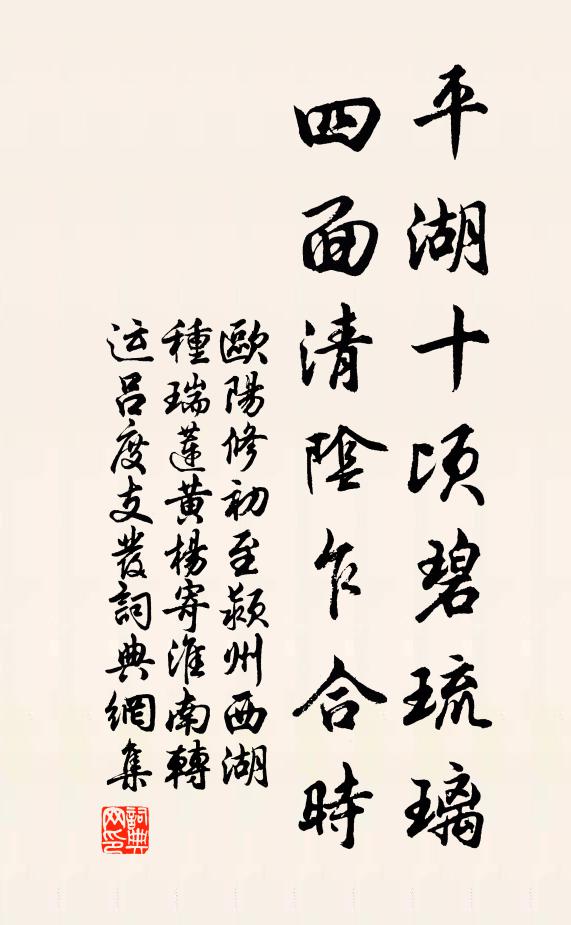 平湖十頃碧琉璃
四面清陰乍合時
歐陽修初至潁州西湖
種瑞蓮黃楊寄淮南轉
运吕度支發詞典網集
詞典网印